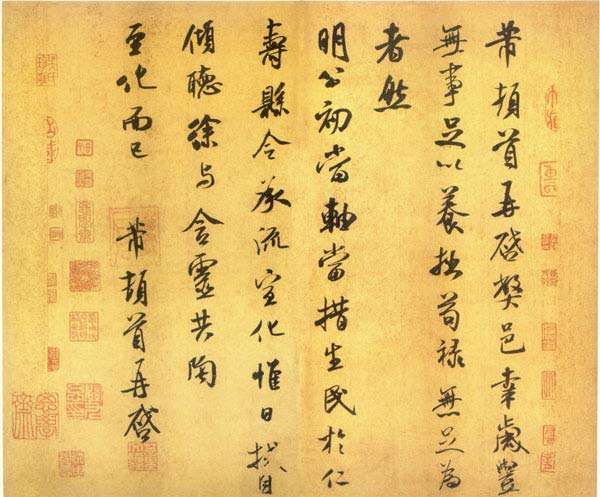 芾頓首再啓獘邑幸歲豐
無事足以養拙苟祿無足為
者然
明公初當軸當措生民於仁
壽縣令承流宣化惟日拭目
傾聽徐与含靈共陶
至化而已 芾頓首再啓